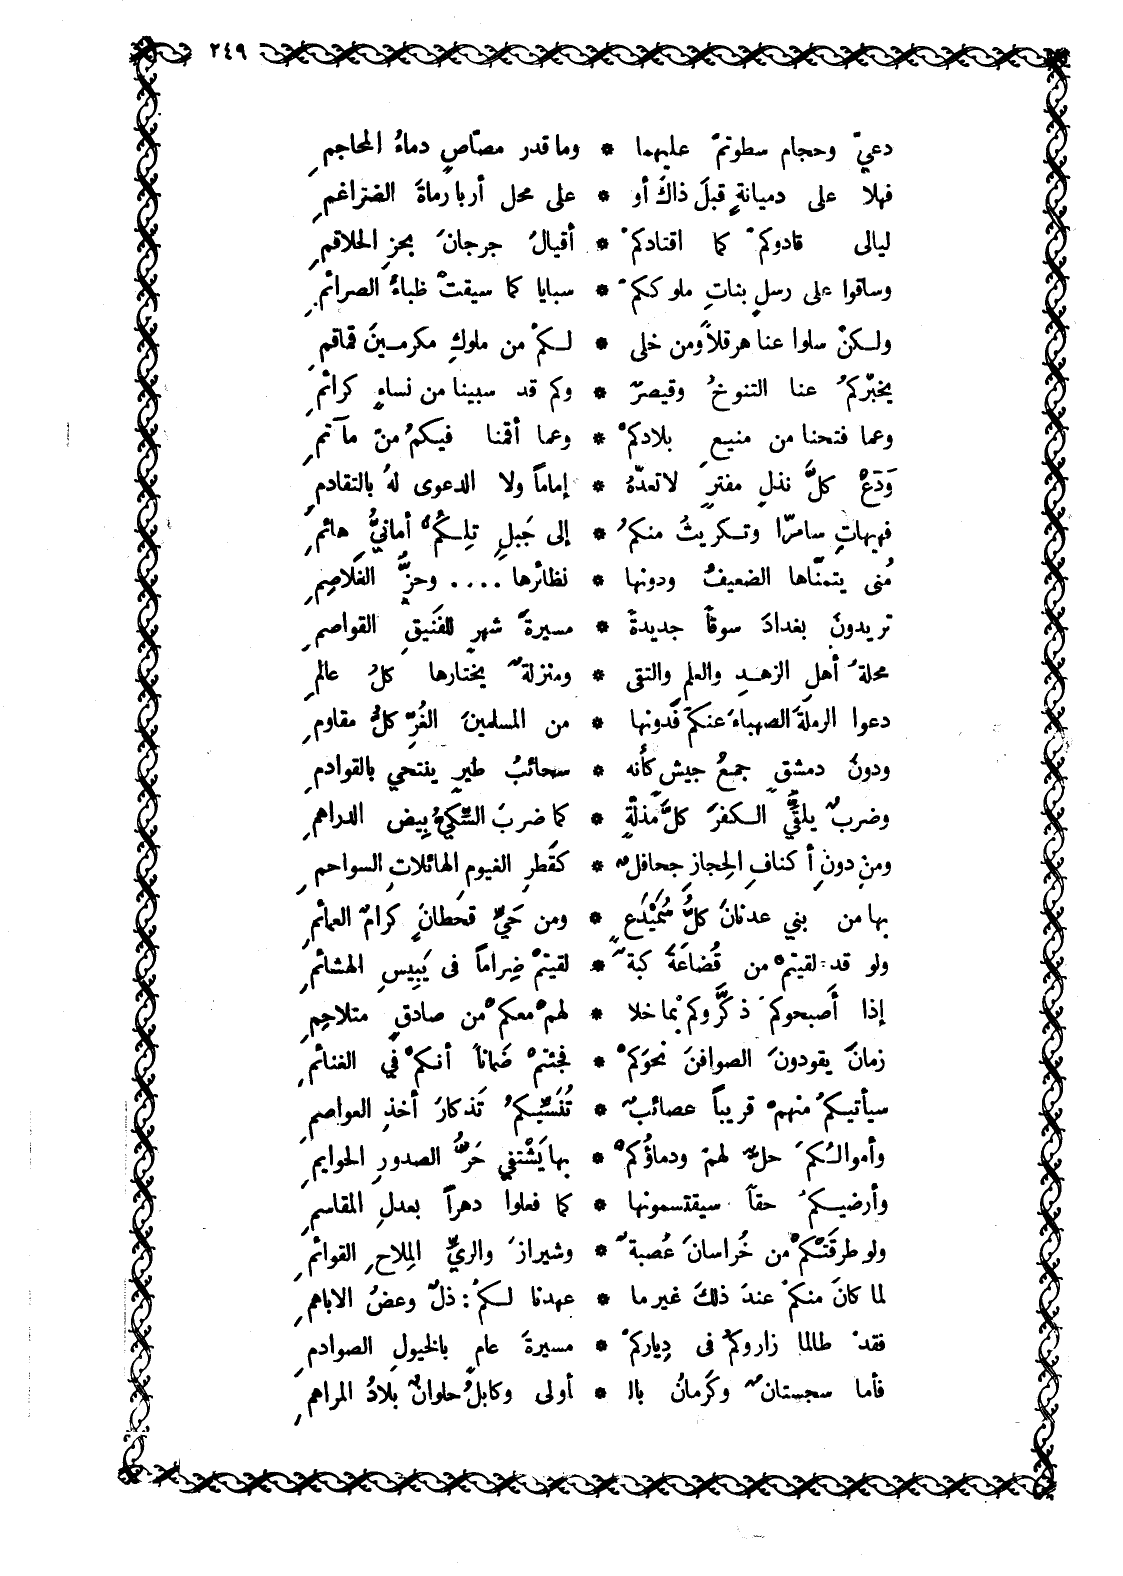 ٢٤٩
دعيّ وحجام سطوتمْ عليهما * وما قدر مصّاصٍ دماءُ المحاجمِ
فهلا على دميانةٍ قبلَ ذاكَ أو * على محل أربا رماةَ الضراغمِ
ليالى قادوكمْ كما اقتادكمْ * أقيالُ جرجانَ بحزِ الحلاقمِ
وساقوا على رسلٍ بناتِ ملوككمْ * سبايا كما سيقتْ ظباءُ الصرائمِ
ولكنْ سلوا عنا هرقلاً ومن خلى * لكمْ من ملوكٍ مكرمينَ قماقمِ
يخبّركمُ عنا التنوخُ وقيصرٌ * وكم قد سبينا من نساءٍ كرائمِ
وعما فتحنا من منيعِ بلادكمْ * وعما أقمنا فيكمُ منْ مآتمِ
وَدَعْ كلَّ نذلٍ مفترٍ لاتعدّهُ * إماماً ولا الدعوى لهُ بالتقادمِ
فهيهاتِ سامرّا وتكريتُ منكمُ * إلى جَبلٍ تلِكُمْ أمانيُّ هائمِ
مُنى يتمنّاها الضعيفُ ودونها * نظائرها .... وحزُّ الغَلاصِمِ
تريدونَ بغدادَ سوقاً جديدةً * مسيرةَ شهرٍ للفَنيقِ القواصمِ
محلةُ أهلِ الزهدِ والعلمِ والتقى * ومنزلةٌ يختارها كلُ عالمِ
دعوا الرملةَ الصهباءَ عنكمَ فدونها * من المسلمينَ الغُرِّ كلُّ مقاومِ
ودونَ دمشقٍ جمعُ جيشٍ كأنه * سحائبُ طيرٍ ينتحي بالقوادمِ
وضربٌ يلقّي الكفرَ كلَّ مَذلّةٍ * كما ضربَ السّكيُّ بِيض الدراهمِ
ومنِ دونِ أكنافِ الحِجازِ جحافلٌ * كقَطرِ الغيومِ الهائلاتِ السواحمِ
بها من بني عدنانَ كلُّ سُمَيْدَعٍ * ومن حَيِّ قحَطانٍ كرامُ العمائمِ
ولو قد لقيتمْ من قُضاعَةَ كبةً * لقيتمْ ضِراماً فى يَبِيسِ الهشائمِ
إذا أَصبحوكمَ ذكَّروكمْ بما خلا * لهمْ معكمْ من صادقٍ متلاحِمِ
زمانَ يقودونَ الصوافنَ نحوَكمْ * فجئتمْ ضَماناً أنكمْ في الغنائمِ
سيأتيكمُ منهمْ قريباً عصائبٌ * تُنَسِّيكمُ تَذكارَ أخذِ العواصمِ
وأموالُكمَ حلٌّ لهمْ ودماؤُكمْ * بها يَشْتفي حَرُّ الصدورِ الحوايمِ
وأرضيكمُ حقاً سيقتسمونها * كما فعلوا دهراً بعدلِ المقاسمِ
ولو طرقَتْكمْ من خُراسانَ عُصبةٌ * وشيرازَ والريِّ المِلاحِ القوائمِ
لما كانَ منكمْ عندَ ذلكَ غير ما * عهدنا لكمُ: ذلٌ وعضُ الاباهمِ
فقدْ طالما زاروكمْ فى دِياركمْ * مسيرةَ عامٍ بالخيولِ الصوادمِ
فأما سجستانٌ وكَرمانُ بال * أولى وكابلُ حلوانٌ بلادُ المراهمِ